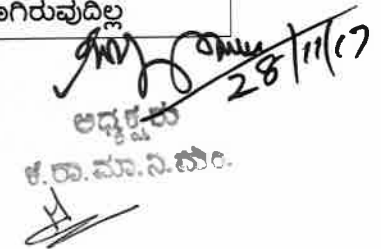 ಾಗಿರುವುದಿಲ್ಲ
28/11/17
ಅಧ್ಯಕ್ಷರು
ಕ.ರಾ.ಮಾ.ನಿ.ಮಂ.